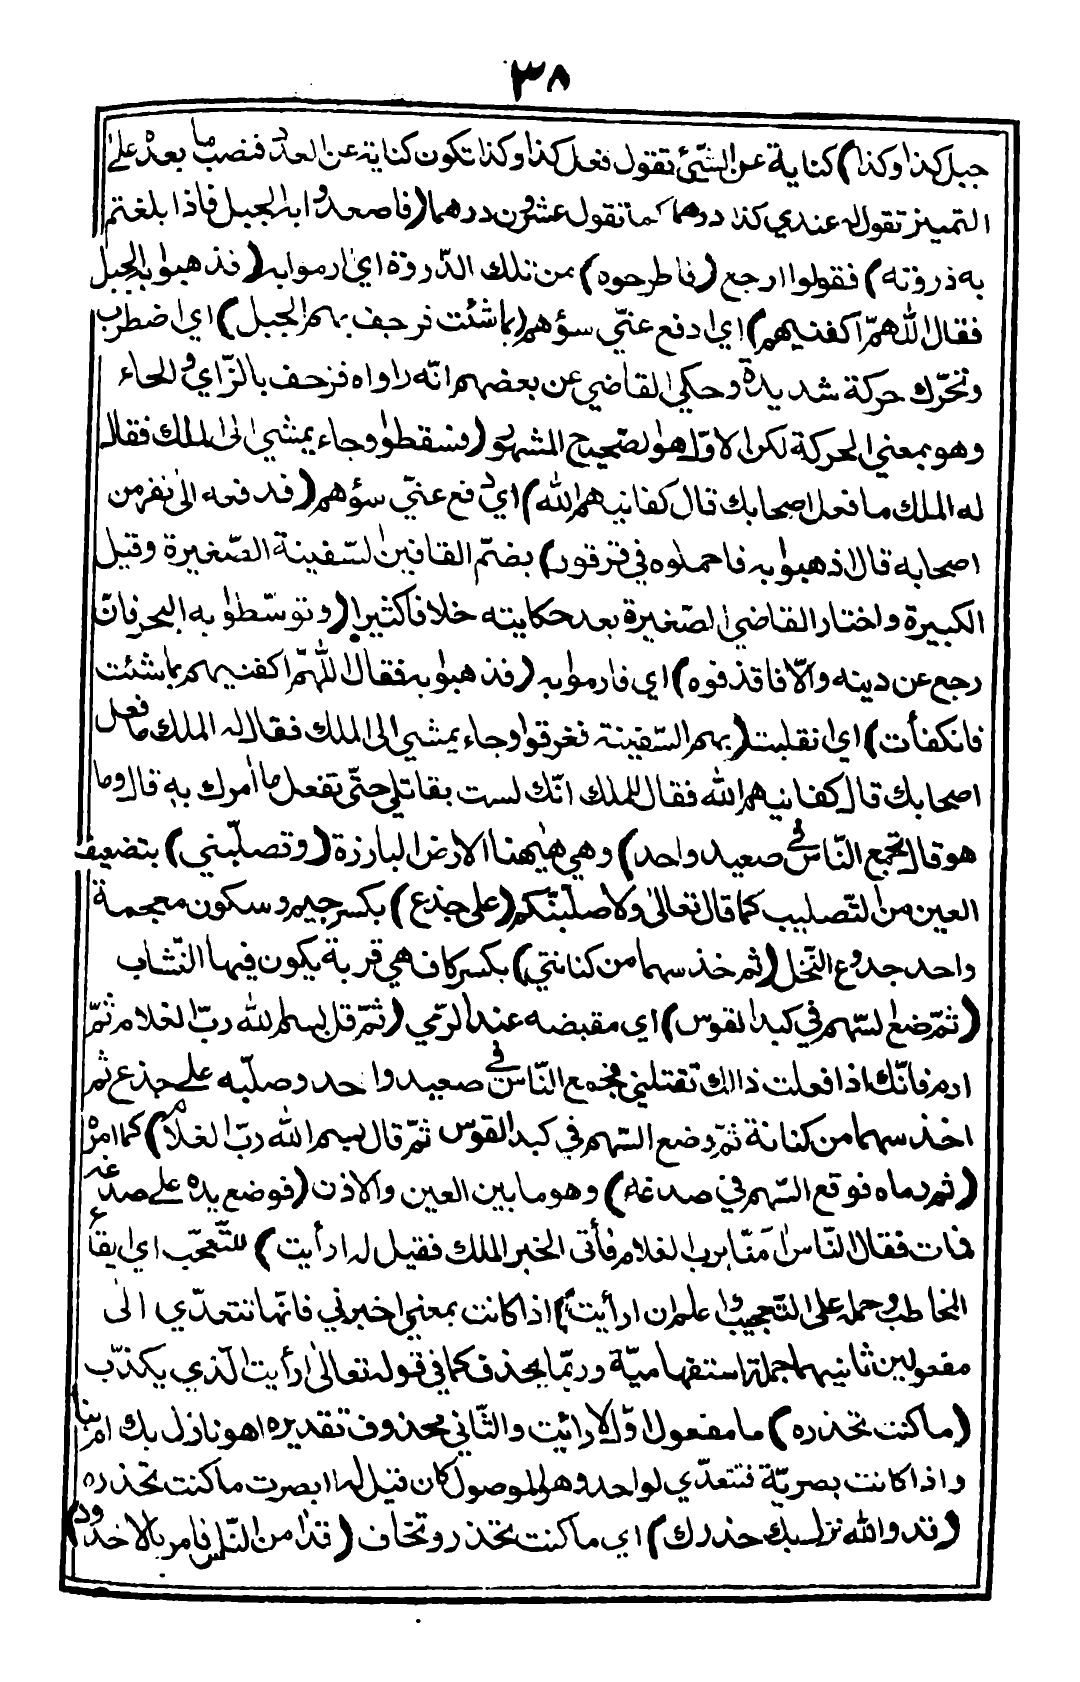 ٣٨
جبل كذا وكذا) كناية عن الشئ تقول فعل كذا وكذا تكون كناية عن العدد فنصب ما بعده على
التميز تقول له عندي كذا درهما كما تقول عشرون درهما (فاصعدوا به الجبل فاذا بلغتم
به ذروته) فقولوا ارجع (فاطرحوه) من تلك الذروة اي ارموا به (فذهبوا به الجبل
فقال اللهمّ اكفنيهم) اي ادفع عنّي سؤهم (بما شئت فرجف بهم الجبل) اي اضطرب
وتحرّك حركة شديدة وحكي القاضي عن بعضهم انّه راواه فزحف بالزّاي والحاء
وهو بمعني الحركة لكن الاوّل هو الصّحيح المشهور (فسقطوا وجاء يمشي الى الملك فقال
له الملك ما فعل اصحابك قال كفانيهم الله) اي دفع عنّي سؤهم (فدفعه الى نفر من
اصحابه قال اذهبوا به فاحملوه في قرقور) بضمّ القافين السّفينة الصّغيرة وقيل
الكبيرة واختار القاضي الصّغيرة بعد حكايته خلافا كثيرا (وتوسّطوا به البحر فان
رجع عن دينه والّا فاقذفوه) اي فارموا به (فذهبوا به فقال اللّهمّ اكفنيهم بما شئت
فانكفأت) اي انقلبت (بهم السّفينة فغرقوا وجاء يمشي الى الملك فقال له الملك ما فعل
اصحابك قال كفانيهم الله فقال للملك انّك لست بقاتلي حتّى تفعل ما أمرك به قال وما
هو قال تجمع النّاس في صعيد واحد) وهي ههنا الارض البارزة (وتصلّبني) بتضعيف
العين من التّصليب كما قال تعالى ولأصلّبنّكم (على جذع) بكسر جيم وسكون معجمة
واحد جدوع النّخل (ثم خذ سهما من كنانتي) بكسر كاف هي قربة يكون فيها النّشاب
(ثمّ ضع السّهم في كبد القوس) اي مقبضه عند الرّمي (ثمّ قل بسم الله ربّ الغلام ثمّ
ارم فانّك اذا فعلت ذالك تقتلني فجمع النّاس في صعيد واحد وصلّبه على جذع ثم
اخذ سهما من كنانة ثمّ وضع السّهم في كبد القوس ثمّ قال بسم الله ربّ الغلام) كما امره
(ثم رماه فوقع السّهم في صدغه) وهو ما بين العين والاذن (فوضع يده على صدغه
فمات فقال النّاس اٰمنّا برب الغلام فأتى الخبر الملك فقيل له ارأيت) للتّعجّب اي ايقا
المخاطب وحمله على التّعجيب واعلم ان ارأيت) اذا كانت بمعني اخبرني فانّها تتعدّي الى
مفعولين ثانيهما جملة استفهاميّة وربّما يحذف كما في قوله تعالى ارأيت الّذي يكذّب
(ما كنت تحذره) ما مفعول اوّل لارائيت والثّاني محذوف تقديره اهو نازل بك امر بنا
واذا كانت بصريّة فتتعدّي لواحد وهو الموصول كان قيل له ابصرت ما كنت تحذره
(قد والله نزل بك حذرك) اي ما كنت تحذر وتخاف (قد اٰمن النّاس فامر بالاخدود)